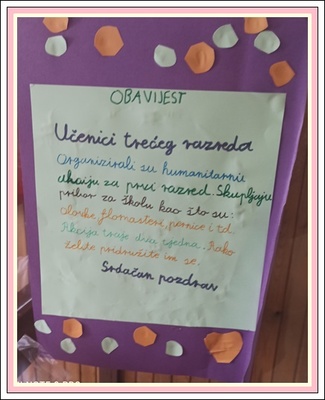 OBAVIJEST
Učenici trećeg razreda
Organizirali su humanitarnu
akciju za prvi razred. Skupljaju
pribor za školu kao što su:
olovke, flomasteri, pernice i td.
Akcija traje dva tjedna. Kako
želite pridružite im se.
Srdačan pozdrav